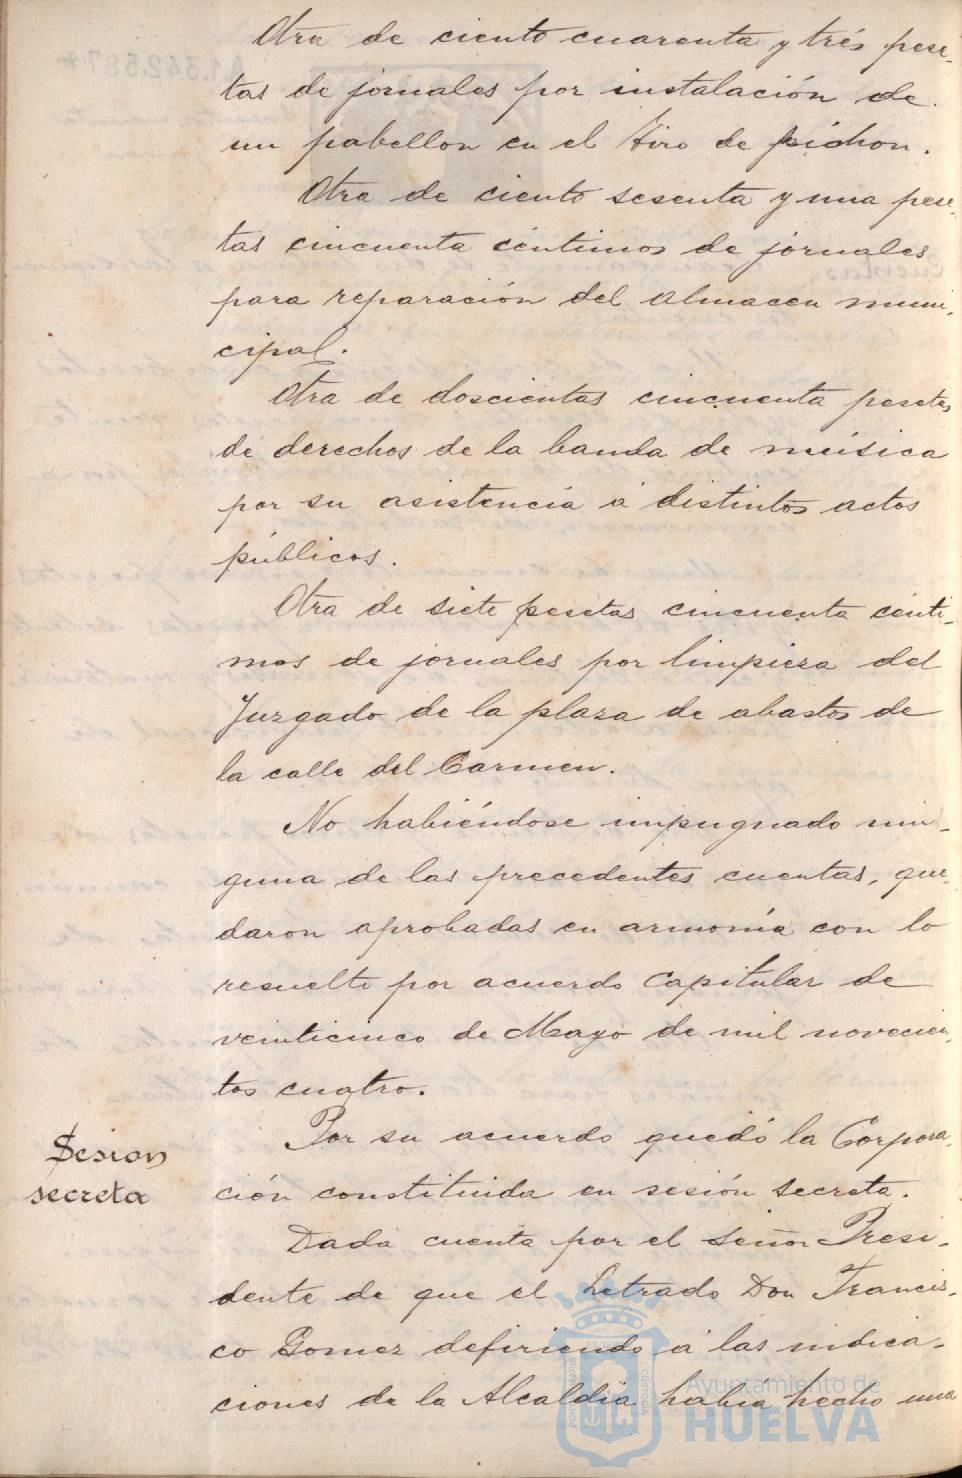 Otra de ciento cuarenta y trés pese-
tas de jornales por instalación de
un pabellon en el tiro de pichon.
Otra de ciento sesenta y una pese-
tas cincuenta céntimos de jornales
para reparación del almacen muni-
cipal.
Otra de doscientas cincuenta pesetas
de derechos de la banda de música
por su asistencia á distintos actos
públicos.
Otra de siete pesetas cincuenta cénti-
mos de jornales por limpieza del
Juzgado de la plaza de abastos de
la calle del Carmen.
No habiéndose impugnado nin-
guna de las precedentes cuentas, que-
daron aprobadas en armonía con lo
resuelto por acuerdo Capitular de
veinticinco de Mayo de mil novecien-
tos cuatro.
Sesion
secreta
Por su acuerdo quedó la Corpora-
ción constituida en sesión secreta.
Dada cuenta por el Señor Presi-
dente de que el Letrado Don Francis-
co Gomez defiriendo á las indica-
ciones de la Alcaldía había hecho una
Ayuntamiento de
HUELVA